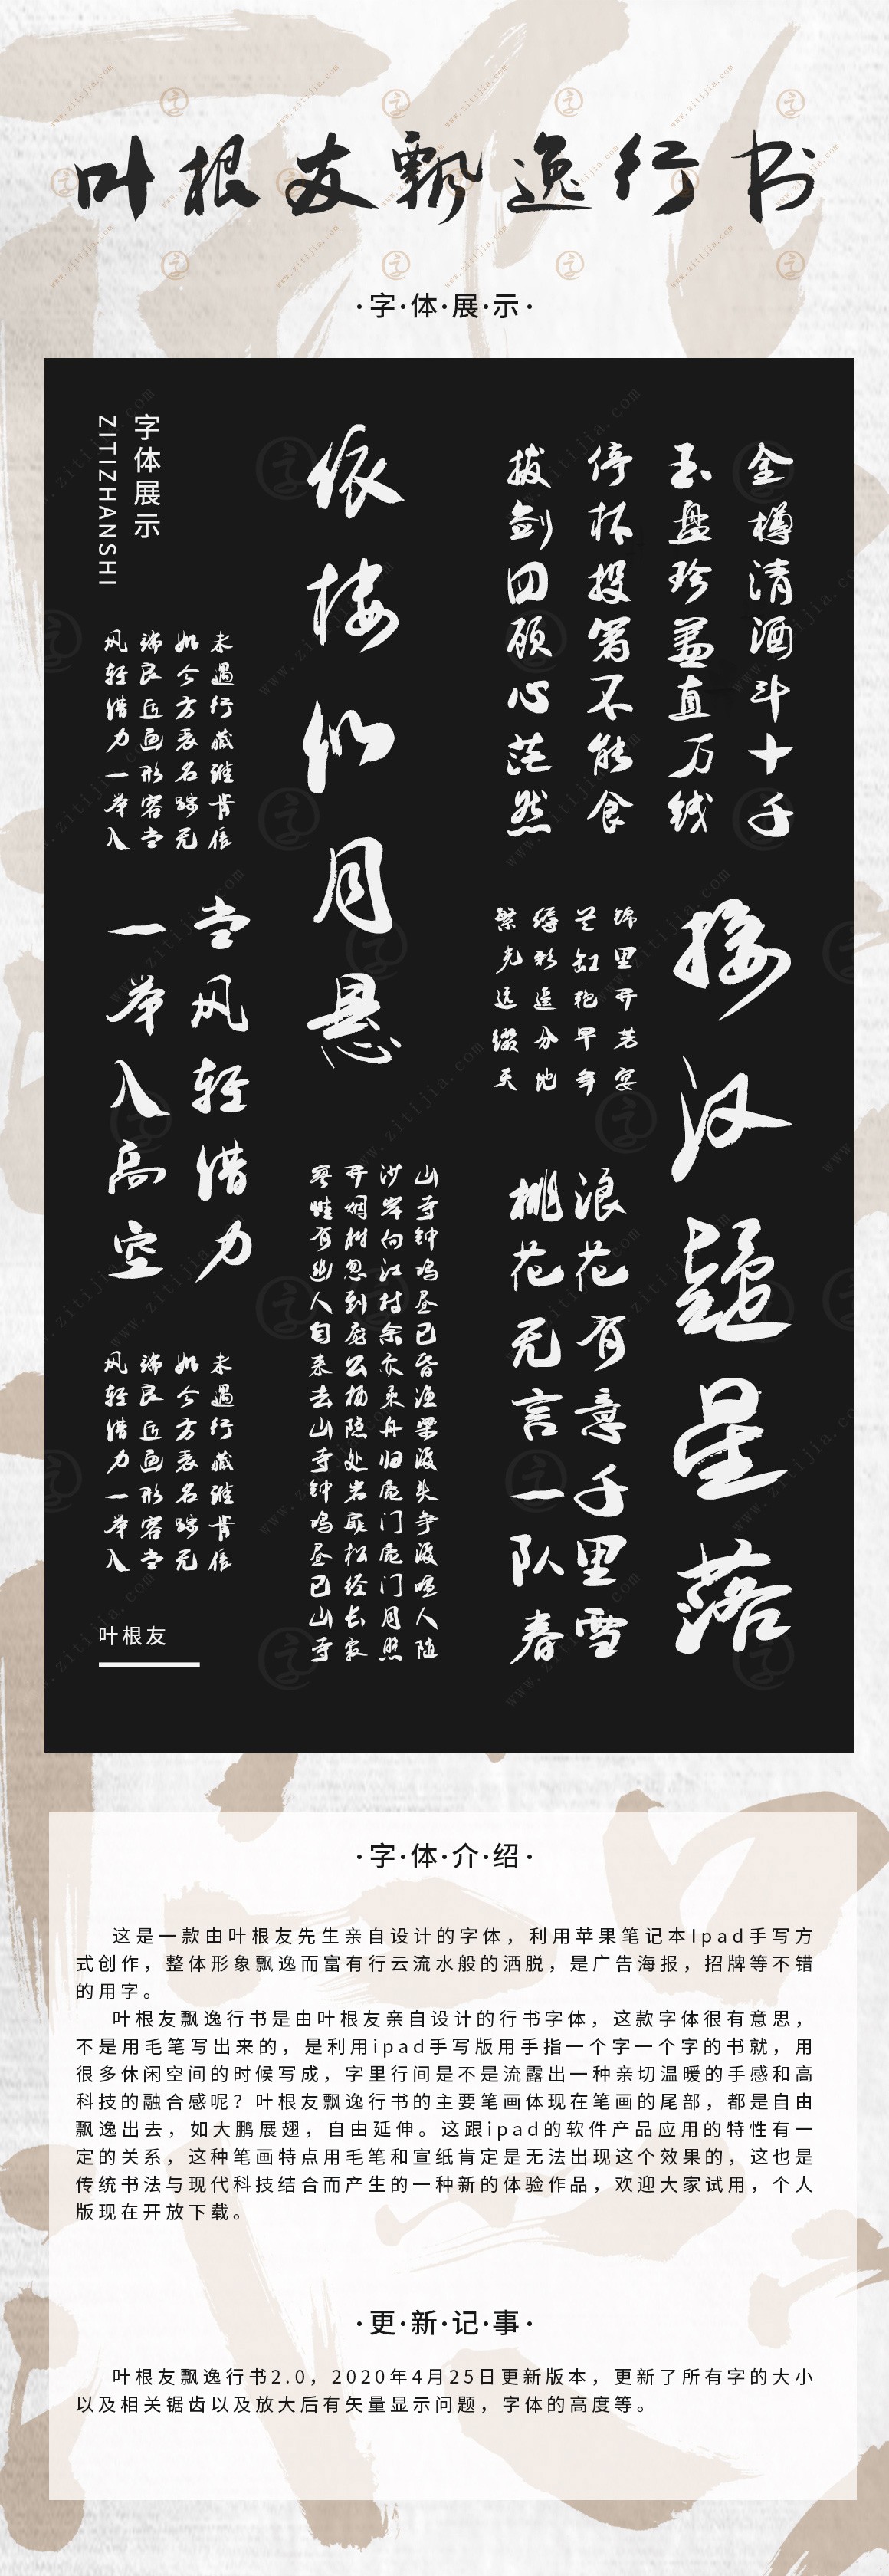 叶根友飘逸行书
·字·体·展·示·
字体展示
ZITIZHANSHI
金樽清酒斗十千
玉盘珍羞直万钱
停杯投箸不能食
拔剑四顾心茫然
依楼似月悬
未遇行藏谁肯信
如今方表名踪无
端良匠画形容当
风轻借力一举入
接汉疑星落
锦里开芳宴
兰缸艳早年
缛彩遥分地
繁光远缀天
当风轻借力
一举入高空
浪花有意千里雪
桃花无言一队春
山寺钟鸣昼已昏渔梁渡头争渡喧人随
沙岸向江村余亦乘舟归鹿门鹿门月照
开烟树忽到庞公栖隐处岩扉松径长寂
寥惟有幽人自来去山寺钟鸣昼已山寺
未遇行藏谁肯信
如今方表名踪无
端良匠画形容当
风轻借力一举入
叶根友
·字·体·介·绍·
这是一款由叶根友先生亲自设计的字体，利用苹果笔记本Ipad手写方
式创作，整体形象飘逸而富有行云流水般的洒脱，是广告海报，招牌等不错
的用字。
叶根友飘逸行书是由叶根友亲自设计的行书字体，这款字体很有意思，
不是用毛笔写出来的，是利用ipad手写版用手指一个字一个字的书就，用
很多休闲空间的时候写成，字里行间是不是流露出一种亲切温暖的手感和高
科技的融合感呢？叶根友飘逸行书的主要笔画体现在笔画的尾部，都是自由
飘逸出去，如大鹏展翅，自由延伸。这跟ipad的软件产品应用的特性有一
定的关系，这种笔画特点用毛笔和宣纸肯定是无法出现这个效果的，这也是
传统书法与现代科技结合而产生的一种新的体验作品，欢迎大家试用，个人
版现在开放下载。
·更·新·记·事·
叶根友飘逸行书2.0，2020年4月25日更新版本，更新了所有字的大小
以及相关锯齿以及放大后有矢量显示问题，字体的高度等。
www.zitijia.com